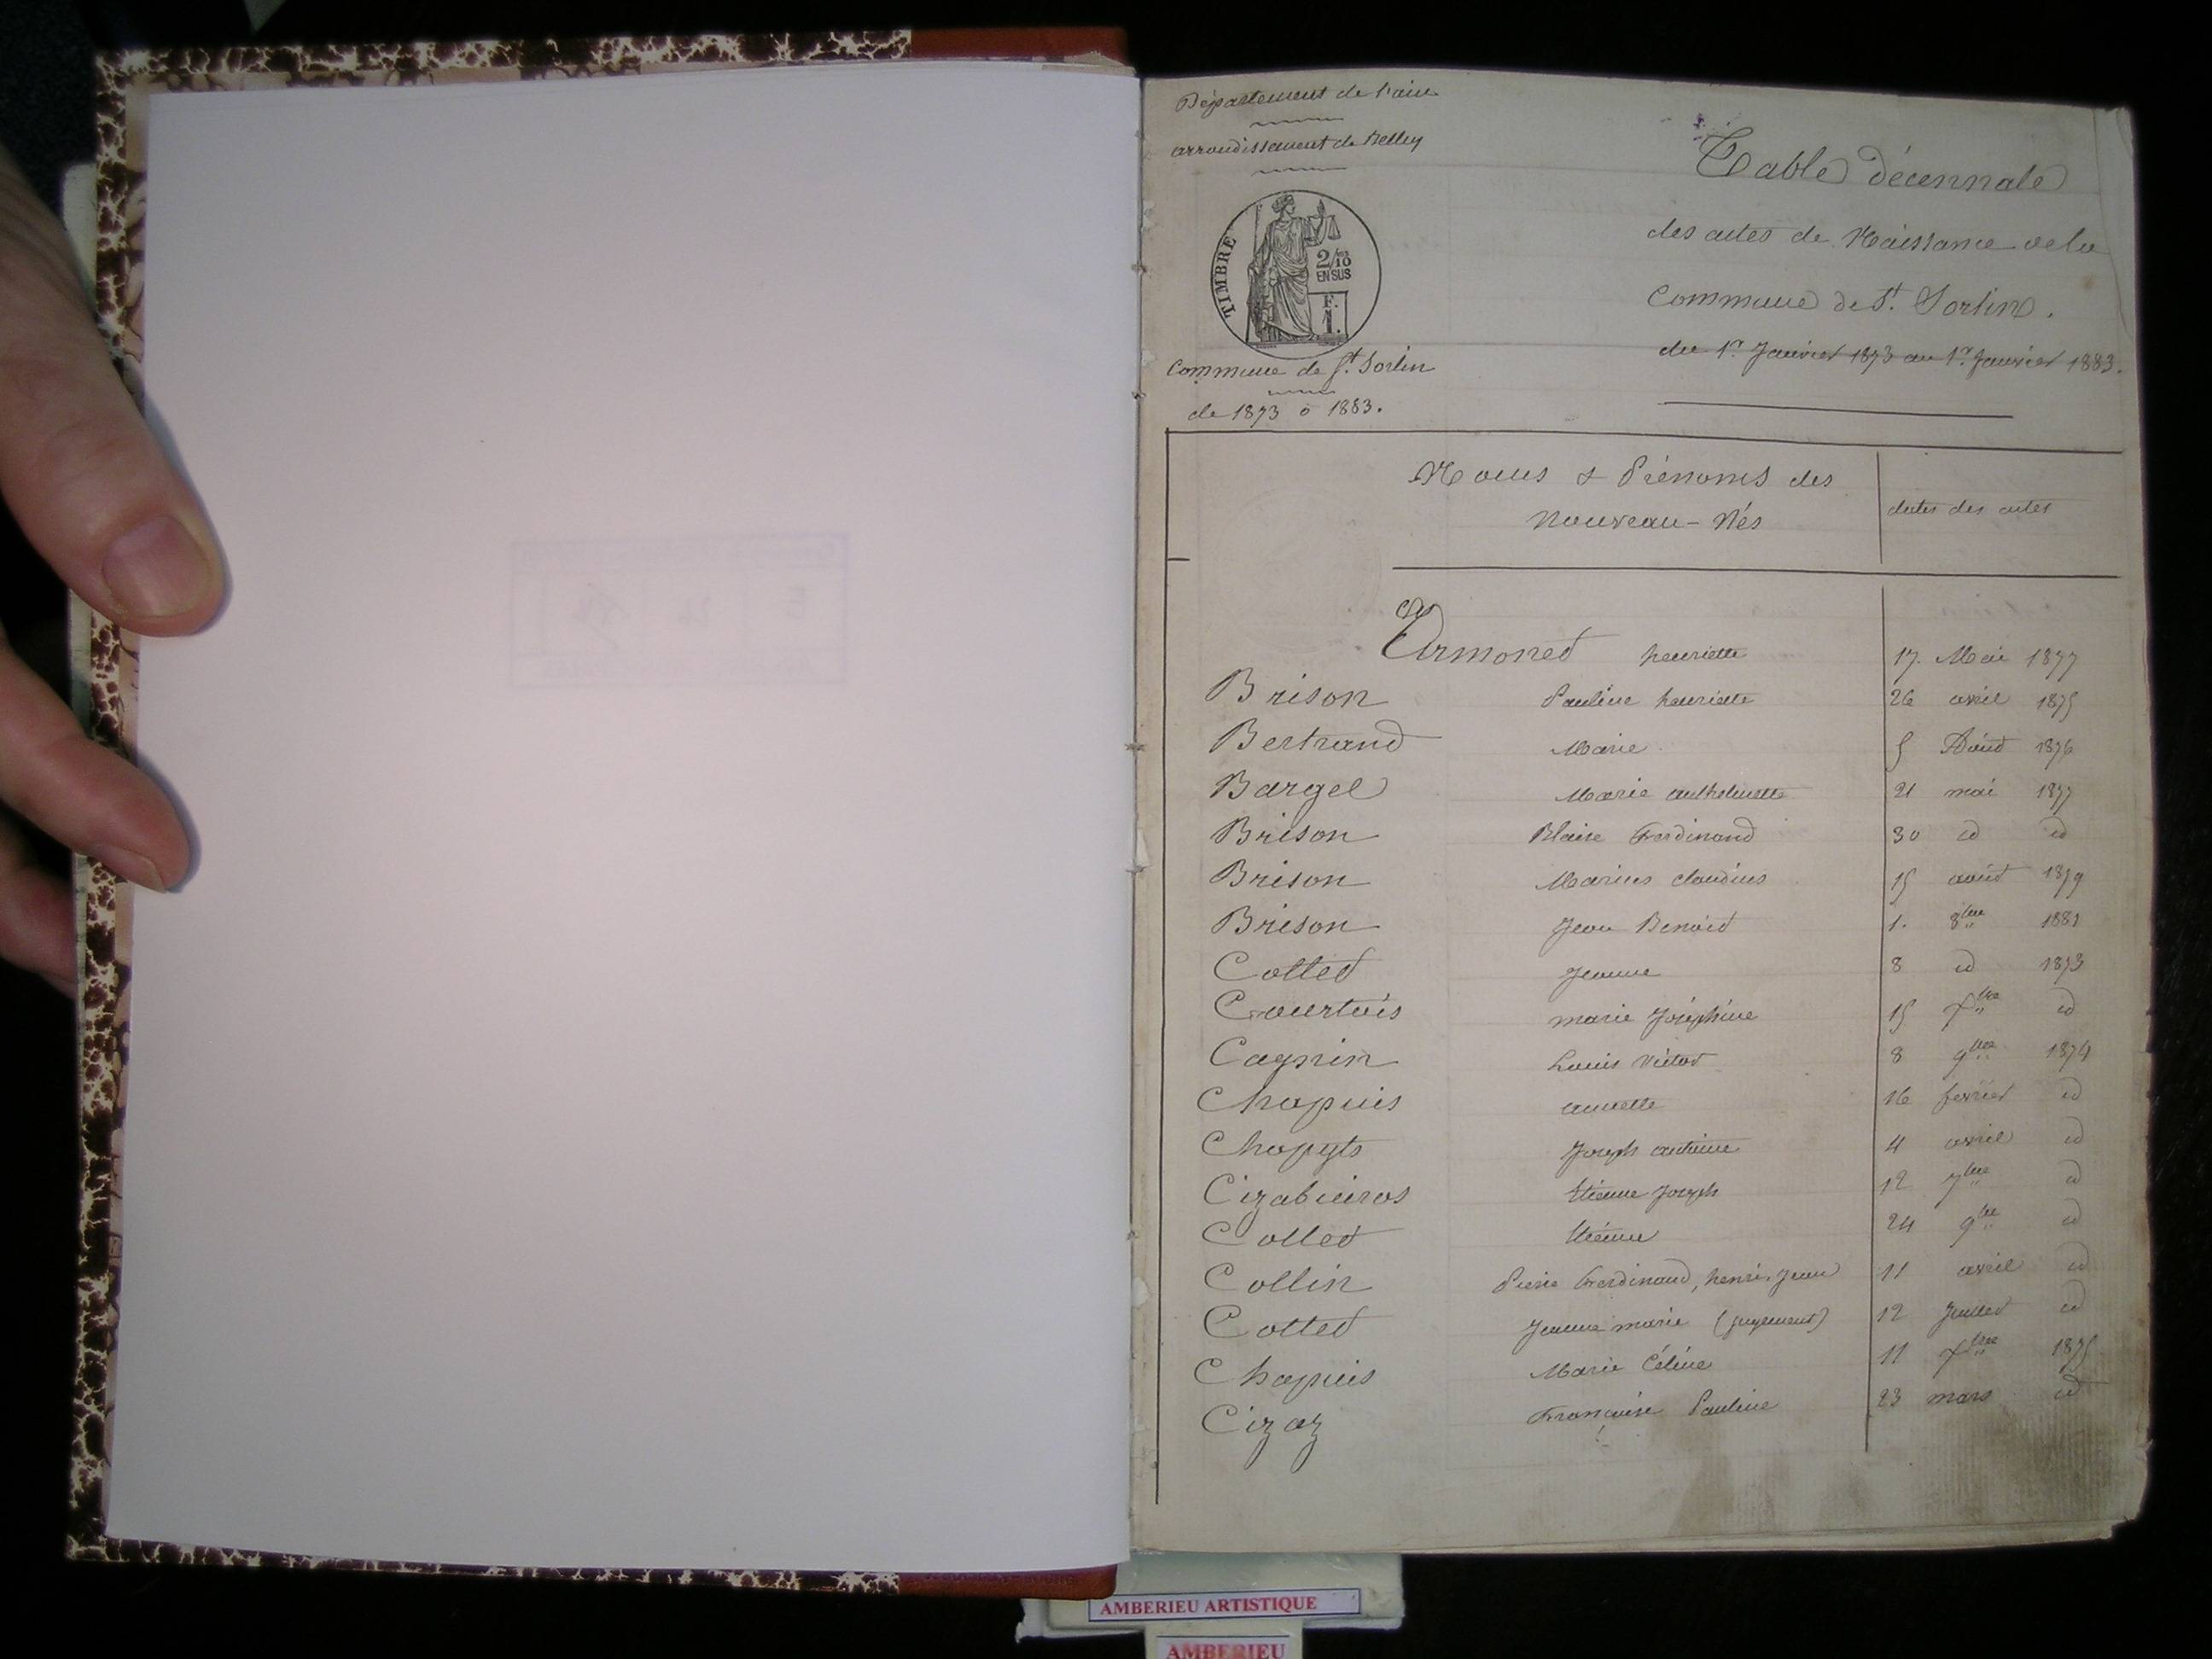 Département de l'ain
arrondissement de Belley
TIMBRE
2/10
EN SUS
F.
1.
Commune de St. Sorlin
de 1873 à 1883.
Table décennale
des actes de Naissance de la
Commune de St. Sorlin.
du 1er Janvier 1873 au 1er Janvier 1883.
Noms & Prénoms des
Nouveau-Nés
dates des actes
Armoned henriette 17. Mai 1877
Brison Pauline henriette 26 avril 1875
Bertrand Marie 5 Août 1876
Bargel Marie anthelmette 21 mai 1877
Brison Blaise Ferdinand 30 id id
Brison Marius claudius 15 août 1879
Brison Jean Benoid 1. 8bre
Cotted Jeanne 8 id 1873
Courtois marie Joséphine 15 xbre id
Cagnin Louis Victor 8 9bre 1874
Chapuis annette 16 fevrier id
Joseph antoine 4 avril id
Etienne Joseph 12 7bre id
Etienne 24 9bre id
Collin Pierre Ferdinand, henri, Jean 11 avril id
Cotted Jeanne marie (jugement) 12 Juillet id
Chapuis Marie Céline 11 xbre 1875
Cizaz Françoise Pauline 23 mars id
AMBERIEU ARTISTIQUE
AMBERIEU